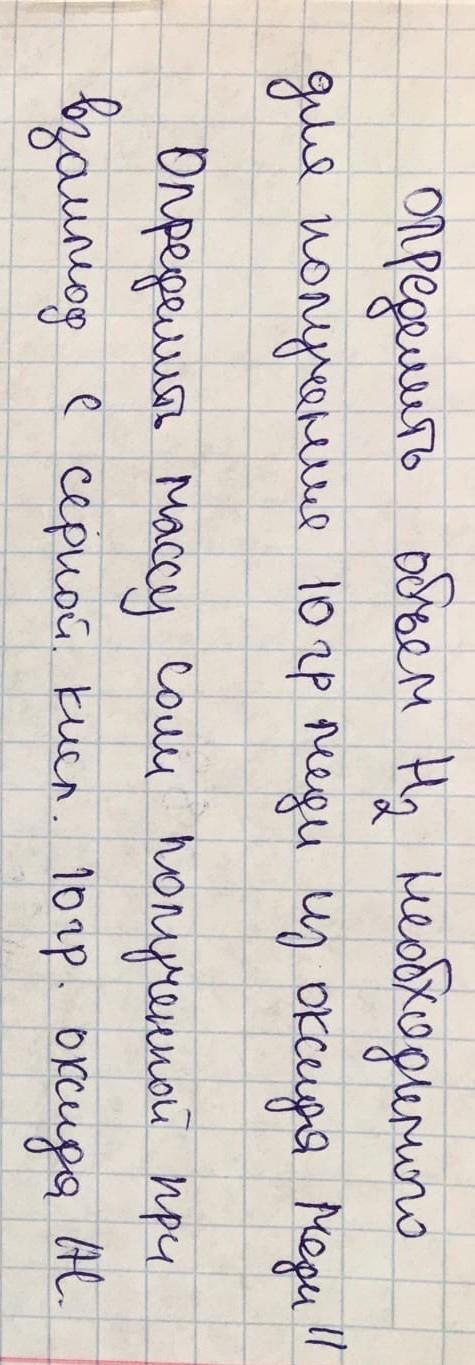 определить объем H₂ необходимого
для получение 10 гр меди из оксида меди II
Определить массу соли полученной при
взаимод с серной. кисл. 10 гр. оксида Al.